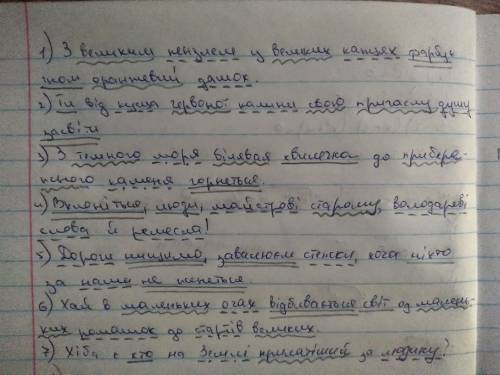 1) З великим пензлем у великих капцях фарбує
гном оранжевий дашок.
2) Ти від куща червоної калини свою пригаслу душу
засвіти
3) З тімного моря білявая хвилечка до прибере-
жного каменя горнеться.
4) Вклоніться, люди, майстрові старому, володареві
слова й ремесла!
5) Дороги нищимо, завалюєм стежки, хоча ніхто
за нами не женеться.
6) Хай в маленьких очах відбивається світ од малень-
ких ромашок до стартів великих.
7) Хіба є хто на Землі прикладніший за людину?